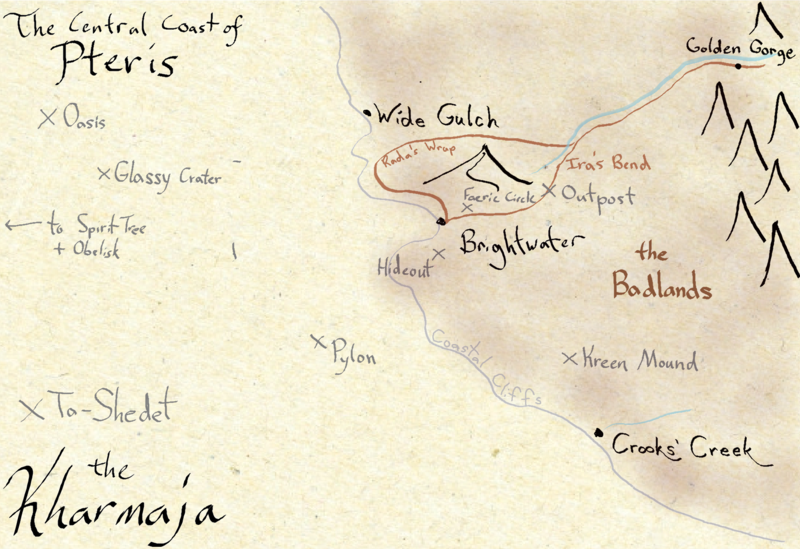 The Central Coast of
Pteris
Golden Gorge
Oasis
Wide Gulch
Rada's Wrap
Ira's Bend
Glassy Crater
Faerie Circle
Outpost
to Spirit Tree
+ Obelisk
Brightwater
Hideout
the
Badlands
Pylon
Coastal Cliffs
Kreen Mound
Ta-Shedet
Crooks' Creek
the
Kharmaja